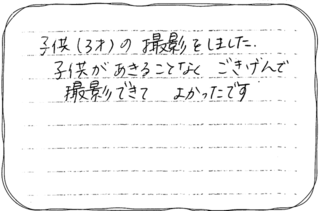 子供(3才)の撮影をしました.
子供があきることなく ごきげんで
撮影できて よかったです